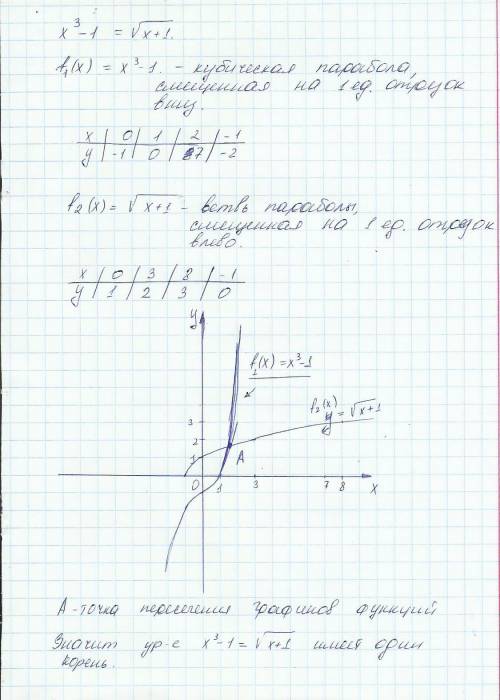 x³-1 = √x+1.
f₁(x) = x³-1. - кубическая парабола,
смещенная на 1 ед. отрезок
вниз.
x | 0 | 1 | 2 | -1
y | -1 | 0 | 7 | -2
f₂(x) = √x+1 - ветвь параболы,
смещенная на 1 ед. отрезок
влево.
x | 0 | 3 | 8 | -1
y | 1 | 2 | 3 | 0
y
f₁(x) = x³-1
f₂(x)
y = √x+1
3
2
1
A
0 1 3 7 8 x
A - точка пересечения графиков функций
Значит ур-е x³-1 = √x+1 имеет один
корень.